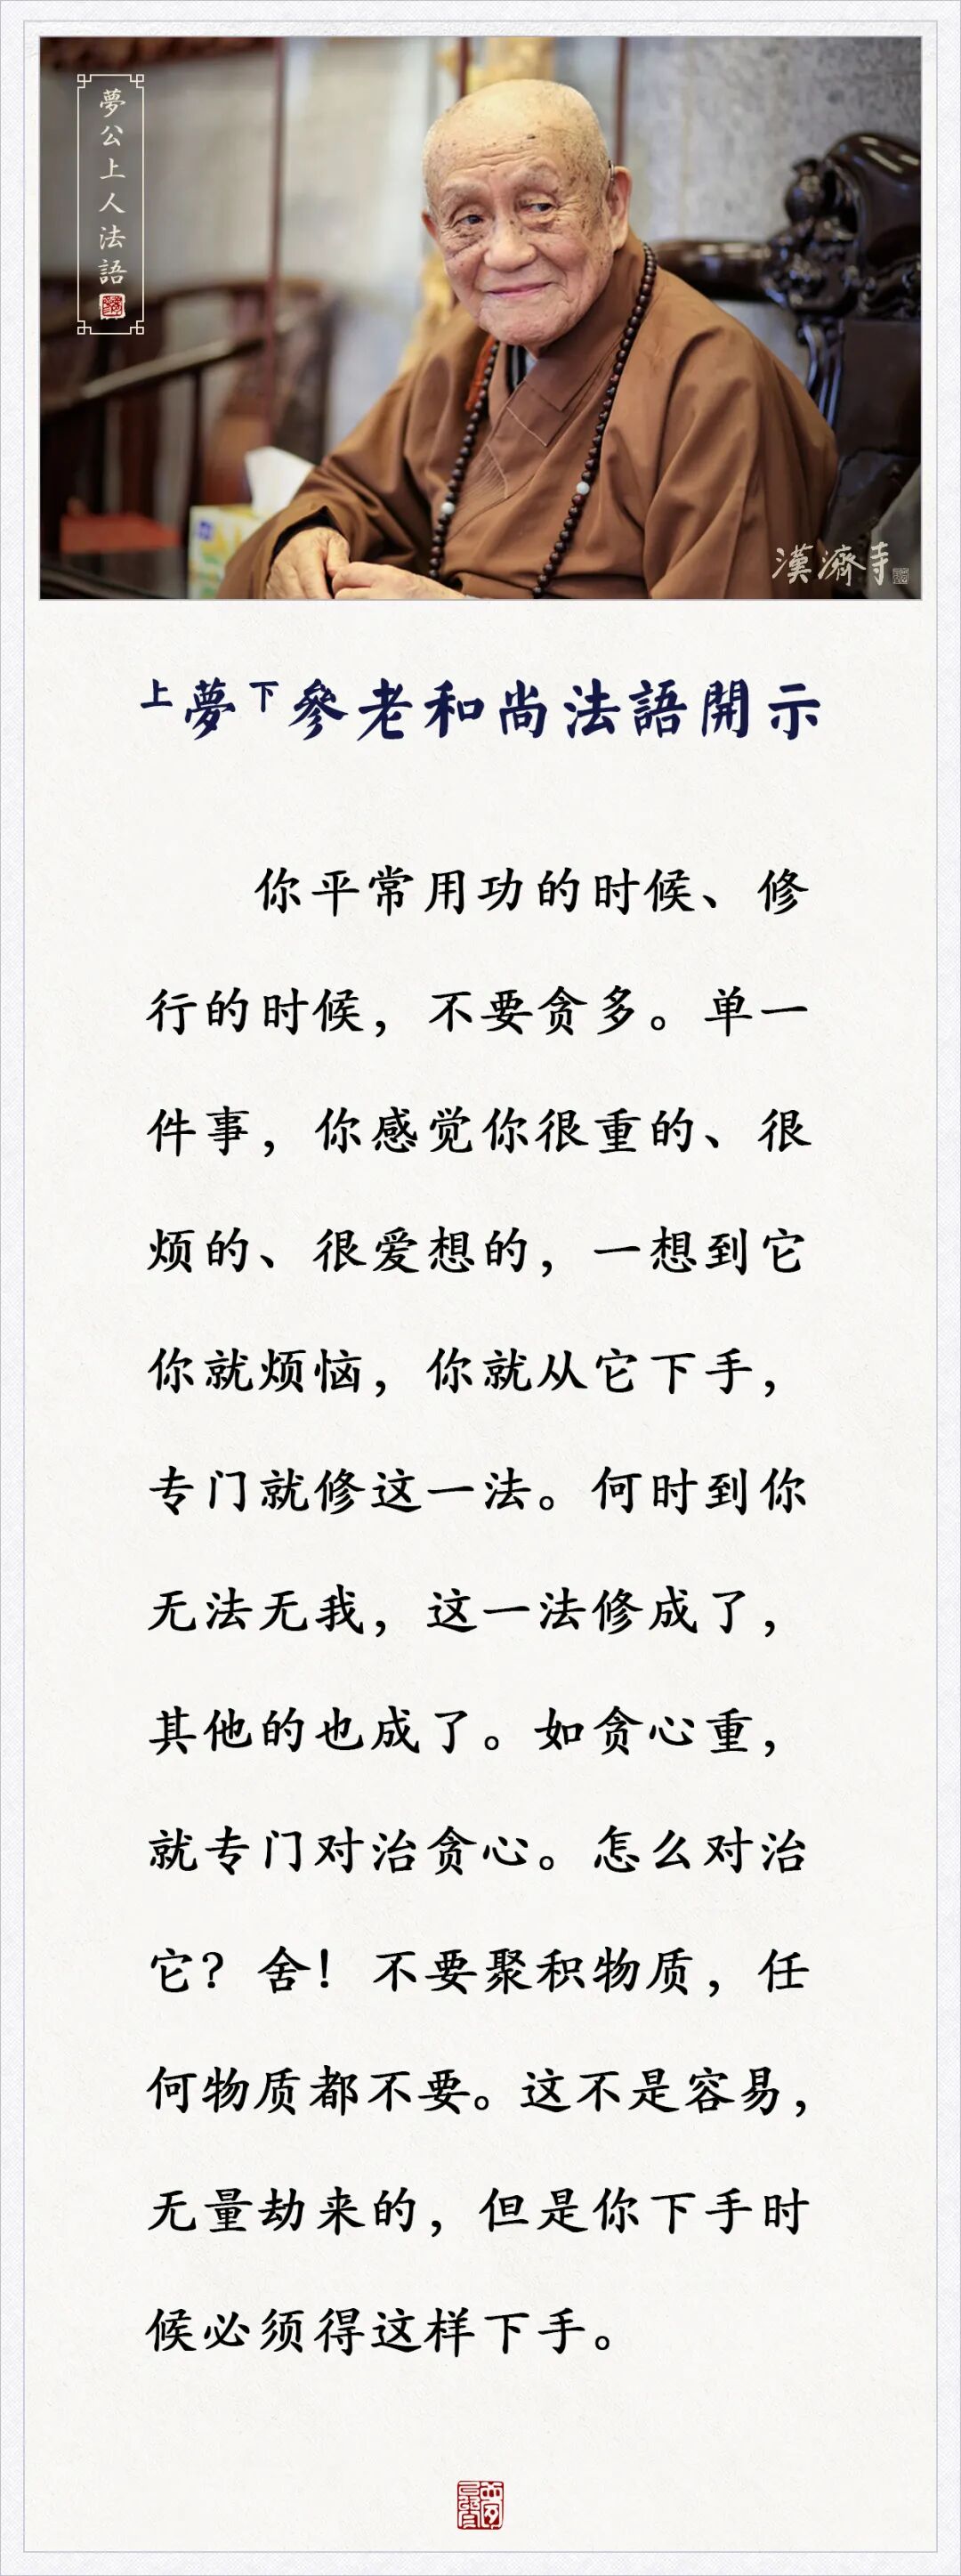 夢公上人法語
漢濟寺
上夢下參老和尚法語開示
你平常用功的时候、修
行的时候，不要贪多。单一
件事，你感觉你很重的、很
烦的、很爱想的，一想到它
你就烦恼，你就从它下手，
专门就修这一法。何时到你
无法无我，这一法修成了，
其他的也成了。如贪心重，
就专门对治贪心。怎么对治
它？舍！不要聚积物质，任
何物质都不要。这不是容易，
无量劫来的，但是你下手时
候必须得这样下手。